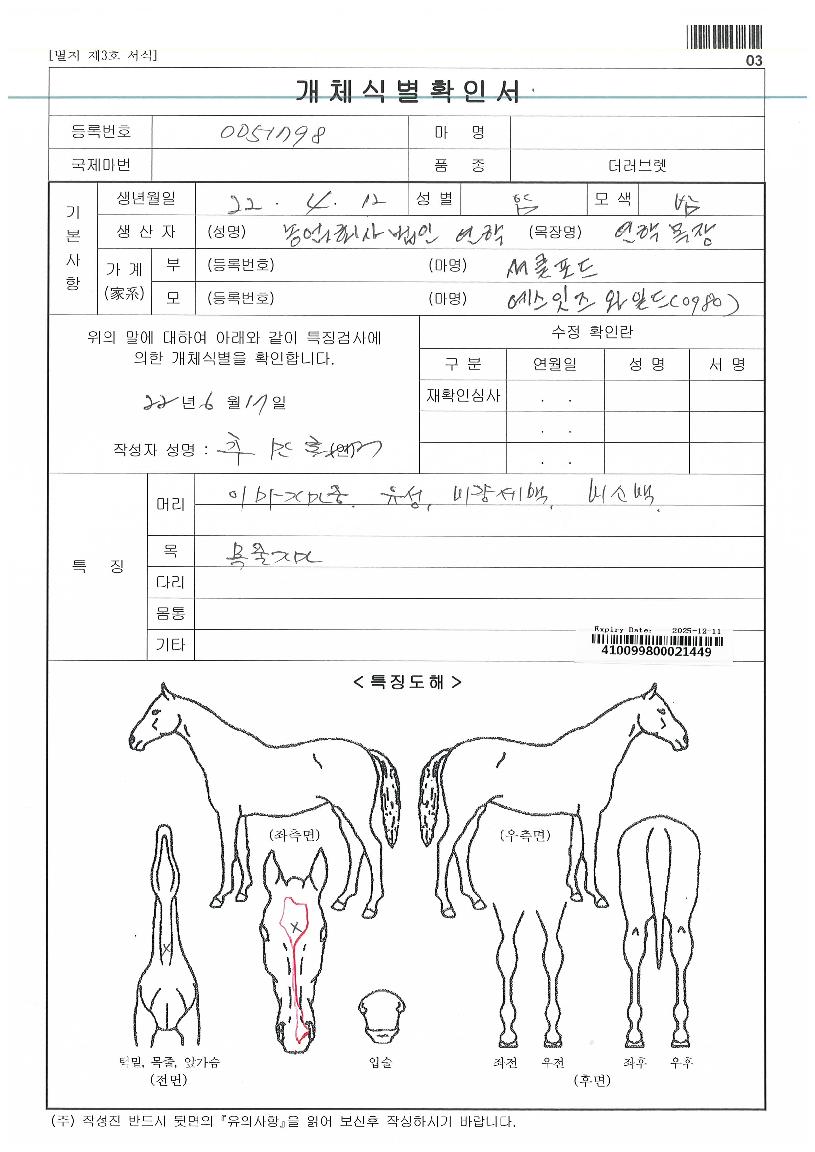 [별지 제3호 서식]
03
개체식별확인서
등록번호 0051798 마 명
국제마번 품 종 더러브렛
기본사항
생년월일 22 . 4 . 12 성 별 암 모 색 밤
생 산 자 (성명) 농업회사법인 연학 (목장명) 연학목장
가 계 (家系) 부 (등록번호) (마명) 써클포드
모 (등록번호) (마명) 예스잇즈와일드(0980)
위의 말에 대하여 아래와 같이 특징검사에
의한 개체식별을 확인합니다.
22년 6월 17일
작성자 성명 :
수정 확인란
구 분 연월일 성 명 서 명
재확인심사 . .
. .
. .
특 징
머리 이마가마중, 유성, 비량세백, 비소백.
목 목줄가마
다리
몸통
기타
Expiry Date: 2025-12-11
410099800021449
< 특징도해 >
(좌측면) (우측면)
턱밑, 목줄, 앞가슴
(전면)
입술
좌전 우전 좌후 우후
(후면)
(주) 작성전 반드시 뒷면의 『유의사항』을 읽어 보신후 작성하시기 바랍니다.